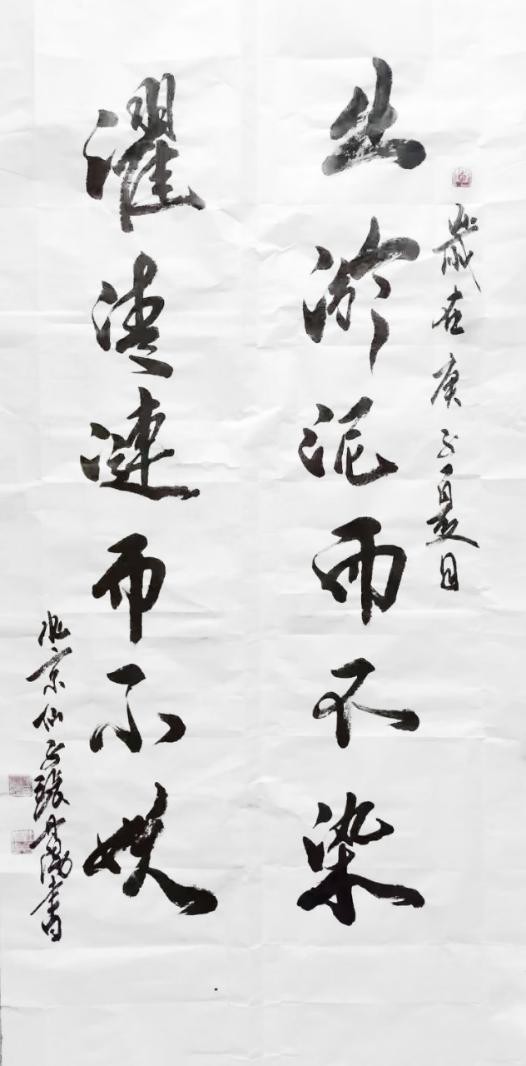 岁在庚子夏日
出淤泥而不染
濯清涟而不妖
北京仙子 书